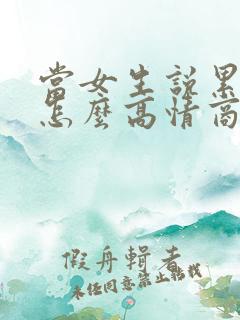 當女生說累
怎麼高情商
假舟輯者
未經同意禁止轉載